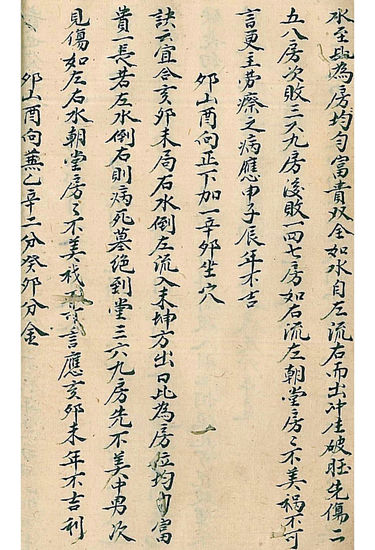 水至此為房均勻富貴双全如水自左流右而出冲生破旺先傷二
五八房次敗三六九房後敗一四七房如右流左朝堂房〻不美禍不可
言更主劳瘵之病應申子辰年不吉
卯山酉向正下加一辛卯坐穴
訣云宜合亥卯未局右水倒左流入未坤方出口此為房位均勻富
貴一長若左水倒右則病死墓絕到堂三六九房先不美中男次
見傷如左右水朝堂房〻不美禍不可言應亥卯未年不吉利
卯山酉向蕪乙辛二分癸卯分金